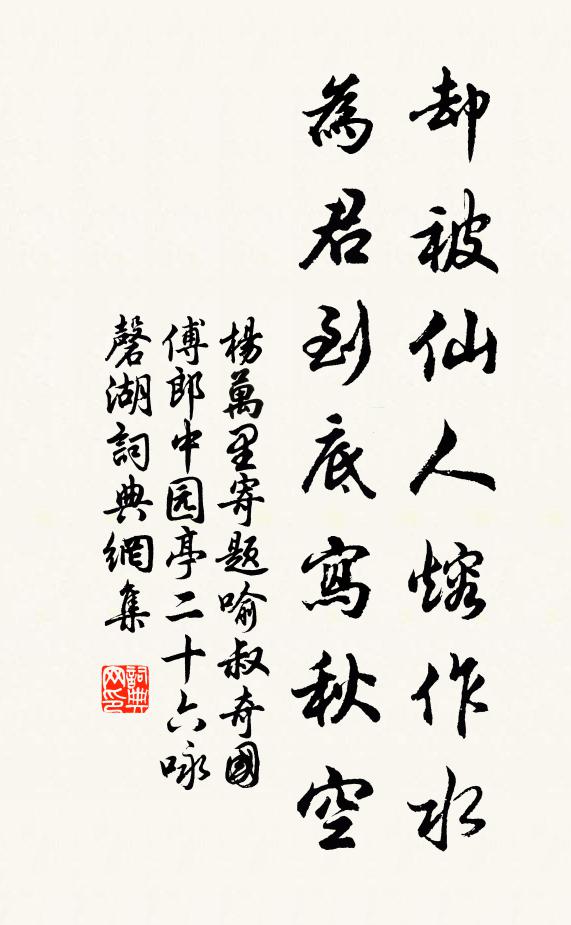 却被仙人熔作水
為君到底寫秋空
楊萬里寄题喻叔奇國
傅郎中园亭二十六咏
磬湖詞典網集
詞典网印